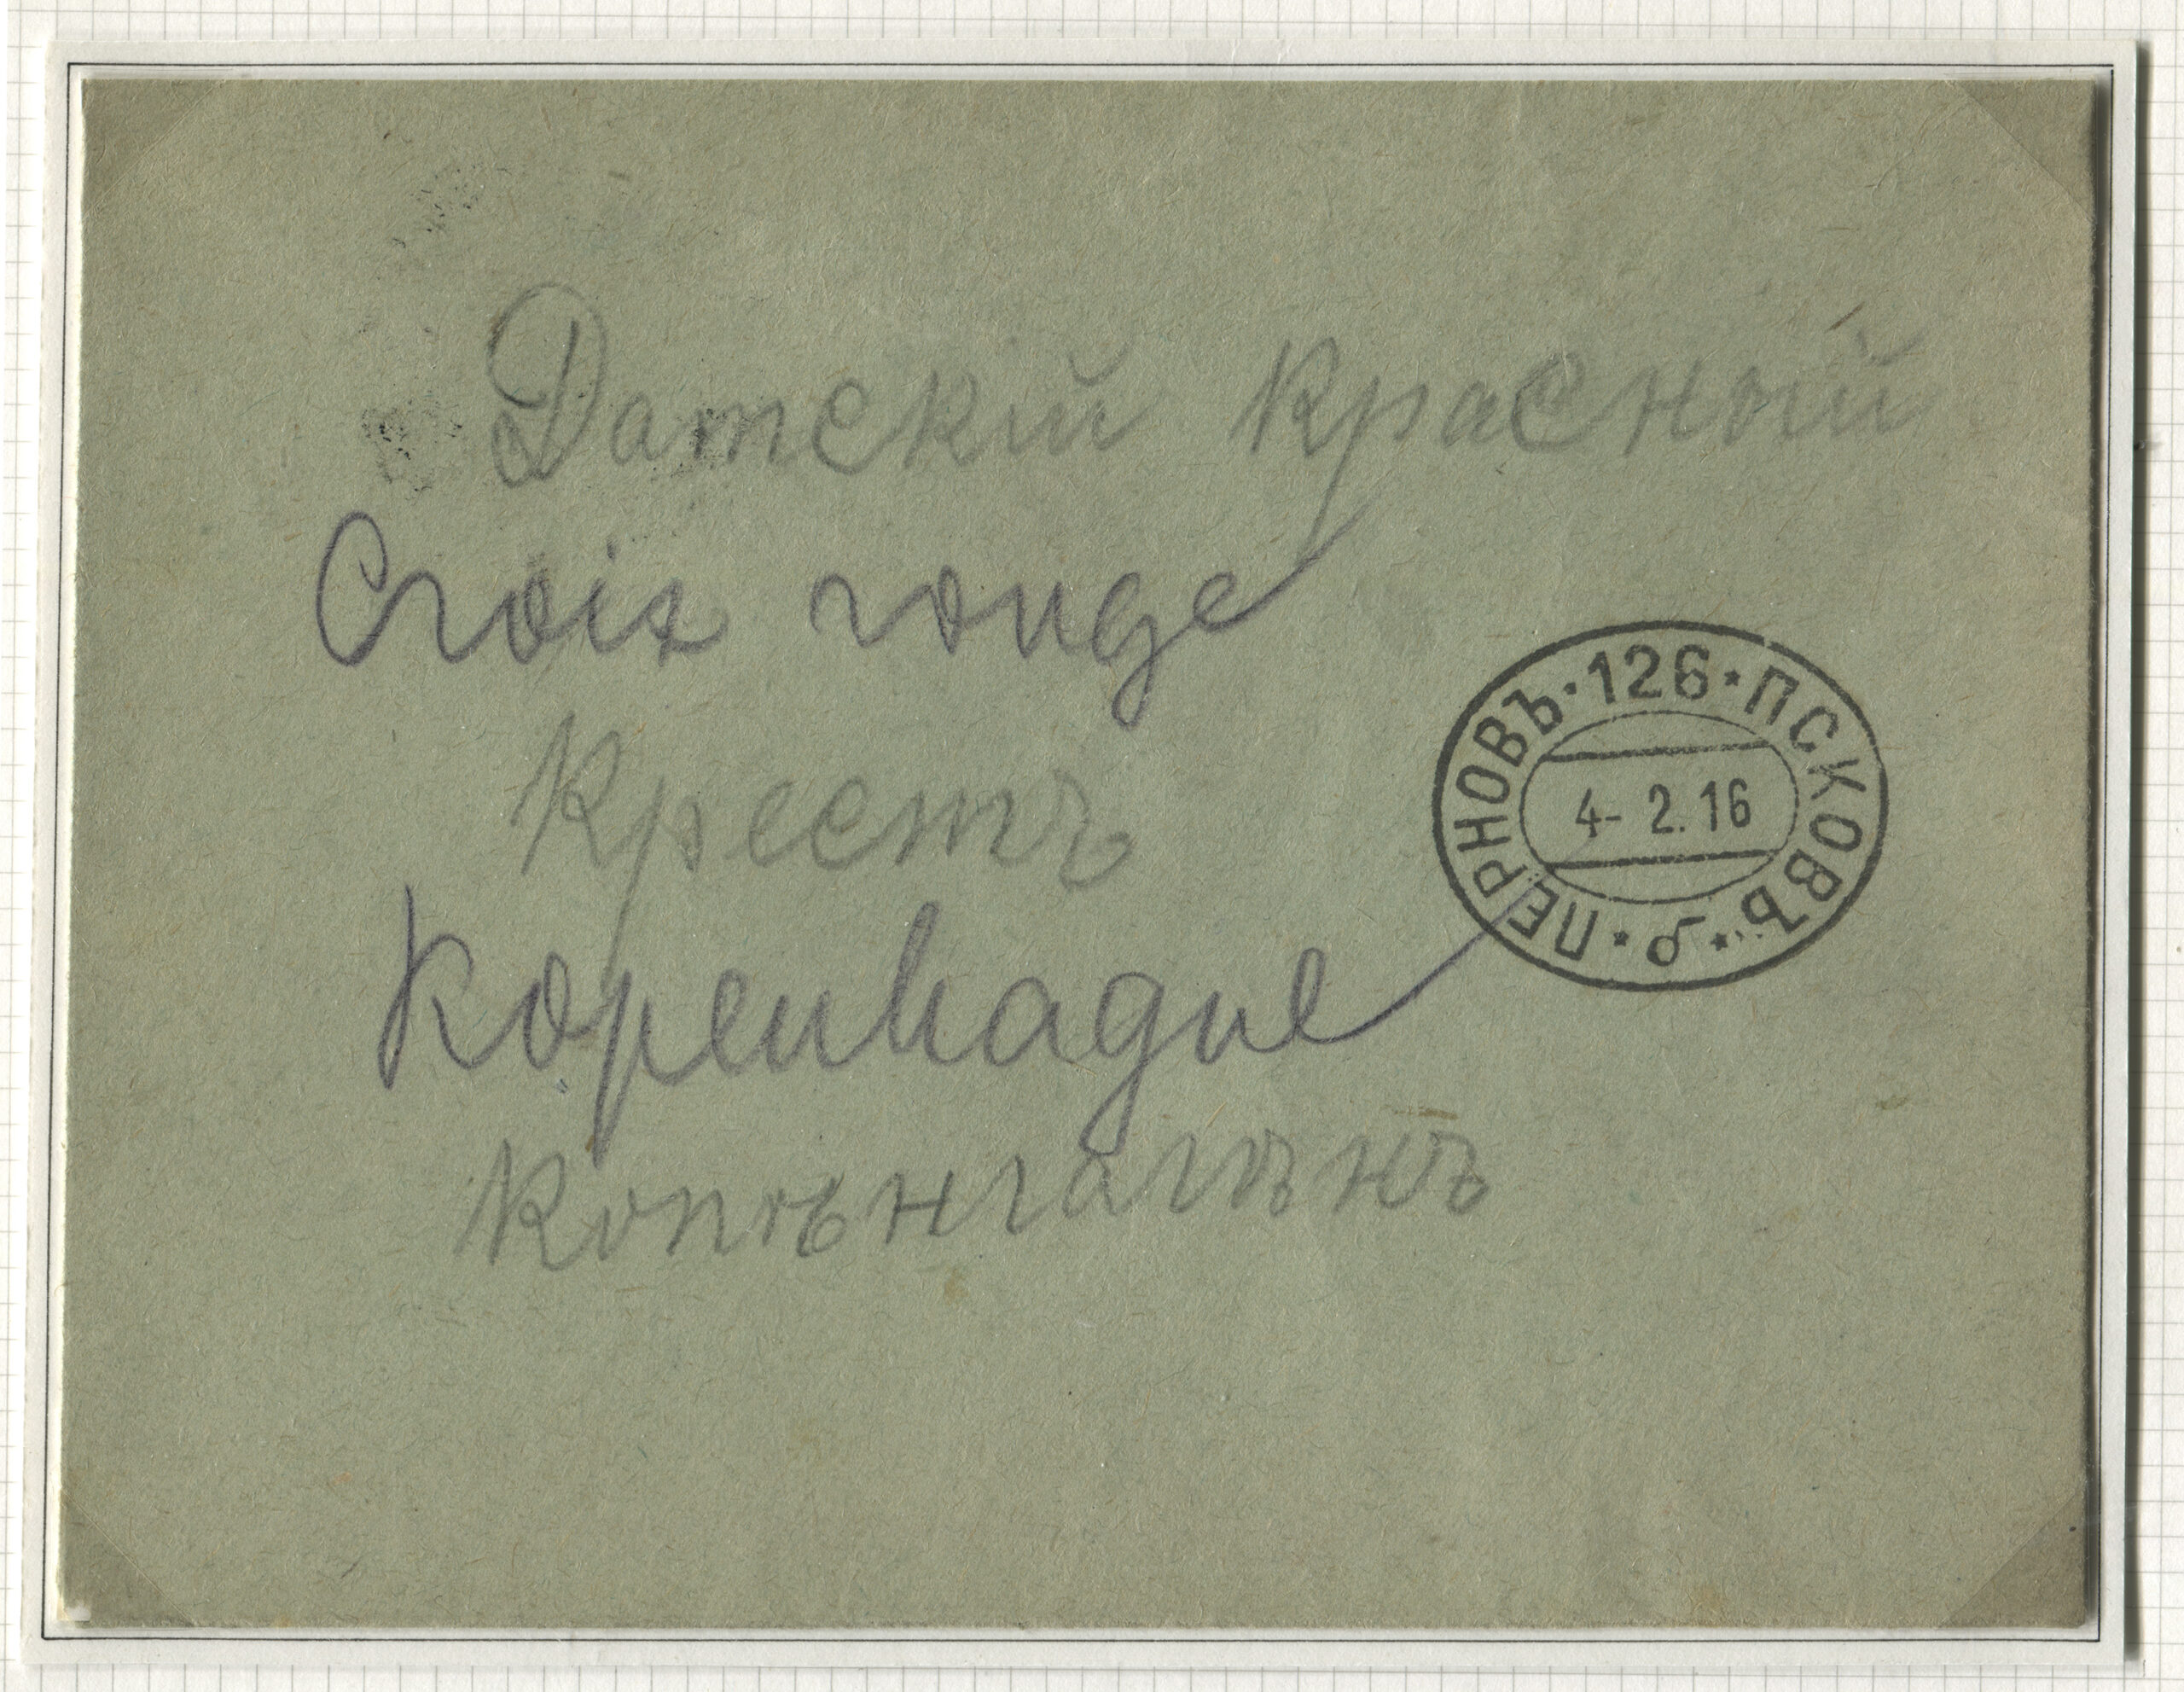 Датскій Красный
Croix rouge
Крестъ
Kopenhague
Копѣнгагѣнъ
ПЕРНОВЪ · 126 · ПСКОВЪ · б ·
4- 2.16